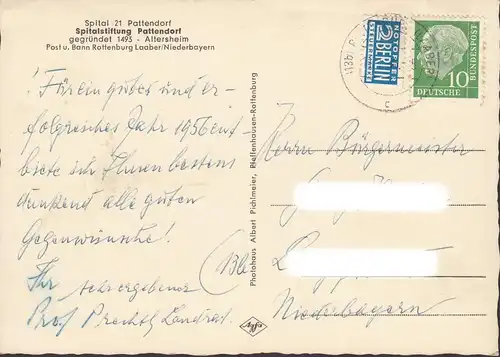 Spital 21 Pattendorf
Spitalstiftung Pattendorf
gegründet 1495 - Altersheim
Post u. Bann Rottenburg Laaber/Niederbayern
Für ein gutes und er-
folgreiches Jahr 1956 ent-
biete ich Ihnen bestens
dankend alle guten
Gegenwünsche!
Ihr sehr ergebener
Prof Prechtl Landrat.
Photohaus Albert Pichlmeier, Pfeffenhausen-Rottenburg
Agfa
NOTOPFER
2 BERLIN
STEUERMARKE
10
DEUTSCHE
BUNDESPOST
c
Herrn Bürgermeister
(13b)
Niederbayern